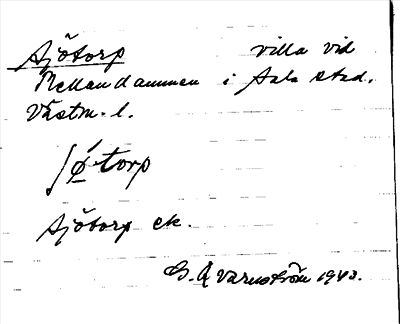 Sjötorp villa vid
Mellandammen i Sala stad.
Västm. l.
/ǿ-torp
Sjötorp ek.
G. A Varnström 1943.